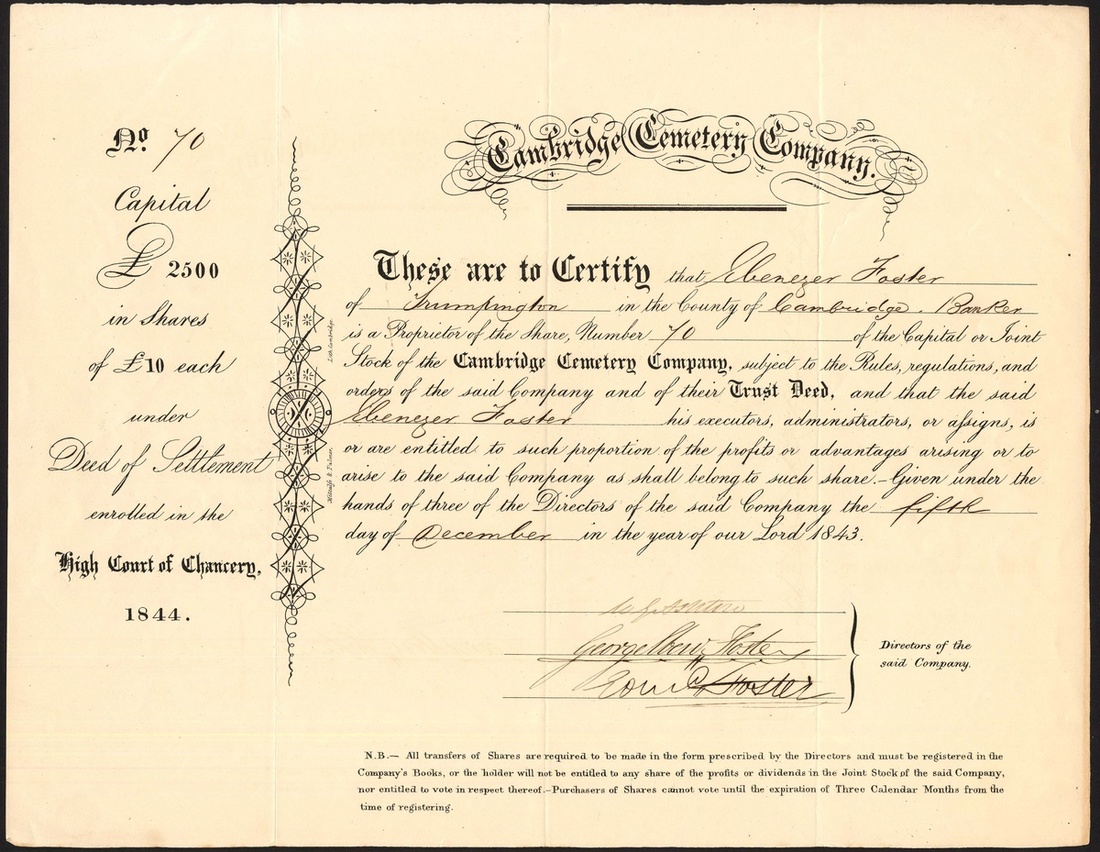 No. 70
Capital
£ 2500
in Shares
of £10 each
under
Deed of Settlement
enrolled in the
High Court of Chancery,
1844.
Metcalfe & Palmer,
Lith. Cambridge.
Cambridge Cemetery Company.
These are to Certify that Ebenezer Foster
of Trumpington in the County of Cambridge. Banker
is a Proprietor of the Share, Number 70 of the Capital or Joint
Stock of the Cambridge Cemetery Company, subject to the Rules, regulations, and
orders of the said Company and of their Trust Deed, and that the said
Ebenezer Foster his executors, administrators, or assigns, is
or are entitled to such proportion of the profits or advantages arising or to
arise to the said Company as shall belong to such share.—Given under the
hands of three of the Directors of the said Company the fifth
day of December in the year of our Lord 1843.
George Foster
Foster
Directors of the
said Company.
N.B.— All transfers of Shares are required to be made in the form prescribed by the Directors and must be registered in the
Company's Books, or the holder will not be entitled to any share of the profits or dividends in the Joint Stock of the said Company,
nor entitled to vote in respect thereof.—Purchasers of Shares cannot vote until the expiration of Three Calendar Months from the
time of registering.